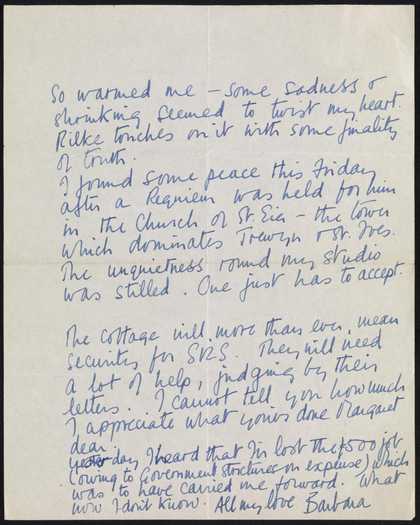 So warmed me – some sadness &
shrinking seemed to twist my heart.
Rilke touches on it with some finality
of truth.
I found some peace this Friday
after a Requiem was held for him
in the Church of St. Eia – the tower
which dominates Trewyn & St. Ives.
The unquietness round my studio
was stilled. One just has to accept.
The cottage will, more than ever, mean
security for S R S. They will need
a lot of help, judging by their
letters. I cannot tell you how much
I appreciate what you've done Margaret
dear.
day I heard that I'm lost the £500 job
(owing to Government strictures on expense) which
was to have carried me forward. What
now I don't know. All my love Barbara